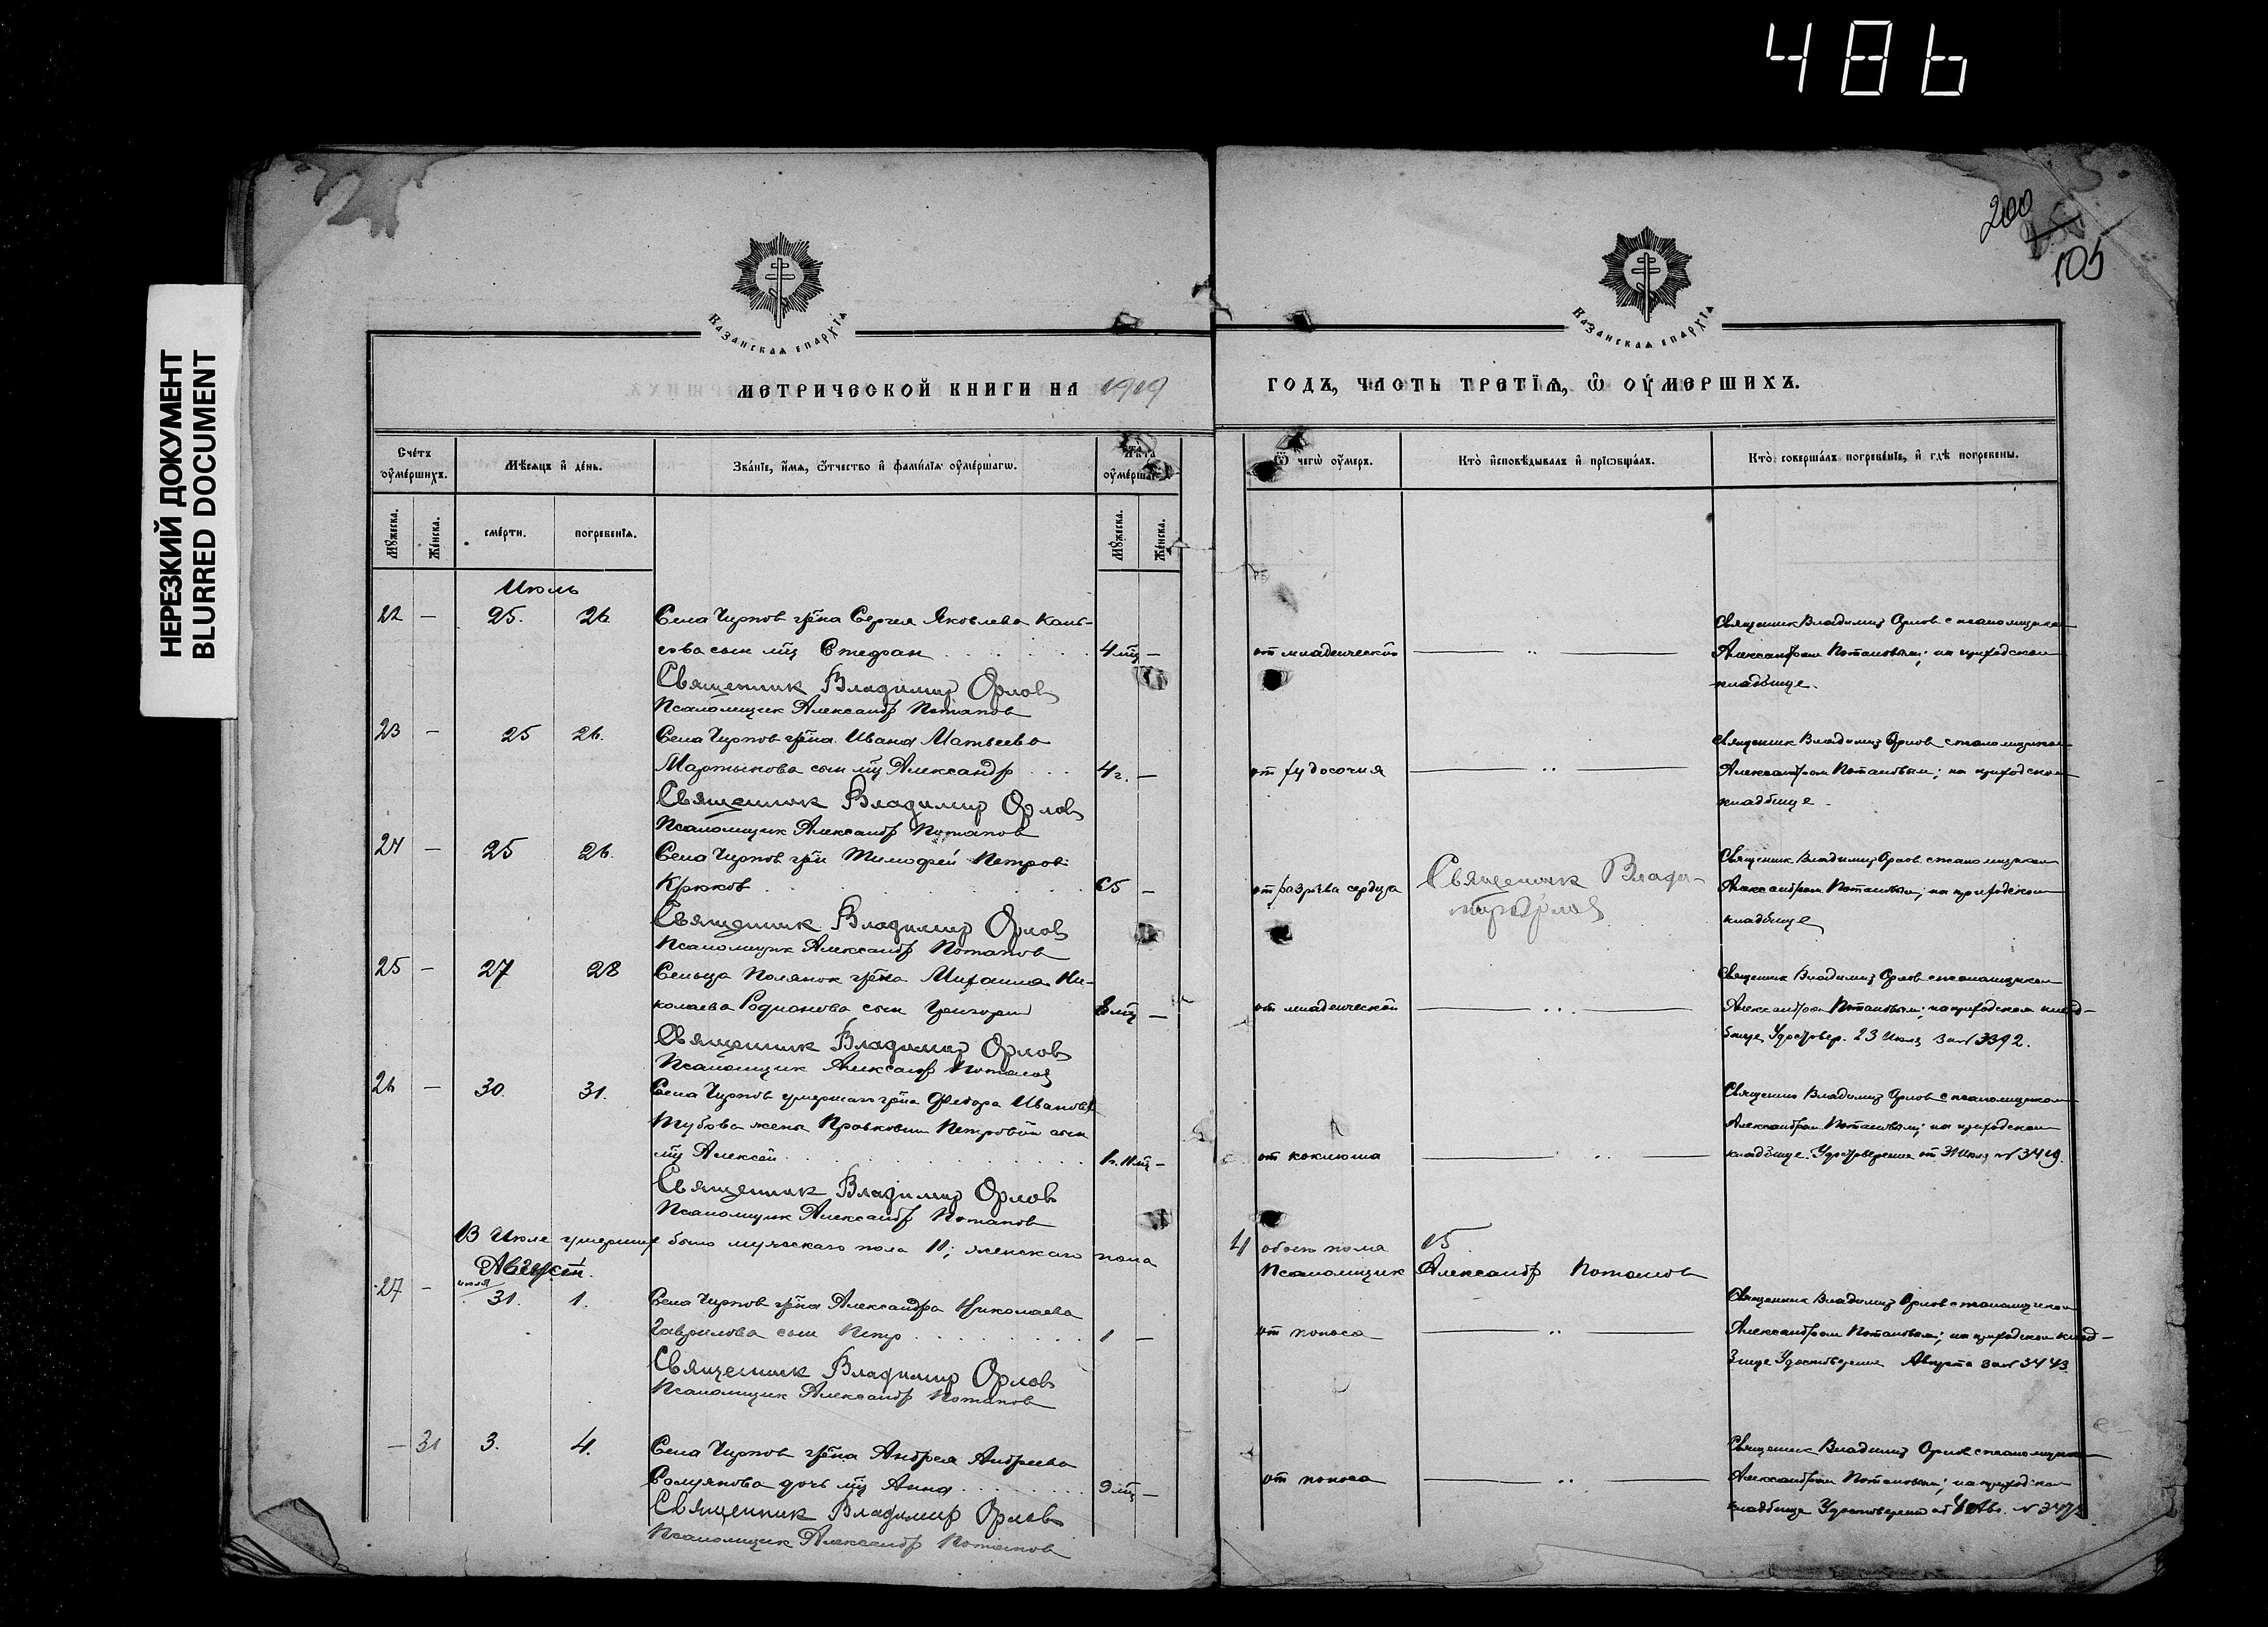 486
НЕРЕЗКИЙ ДОКУМЕНТ
BLURRED DOCUMENT
200
105
Казанская епархїѧ
Казанская епархїѧ
МЕТРИЧЕСКОЙ КНИГИ НА 1919
ГОДЪ, ЧАСТЬ ТРЕТЇѦ, Ѡ ОУМЕРШИХЪ.
Счетъ оумершихъ.
Мѣсяцъ и день.
Званїе, имѧ, ѿчество и фамилїѧ оумершагѡ.
Лѣта оумершагѡ
Ѿ чегѡ оумеръ.
Кто исповѣдывалъ и прїѡбщалъ.
Кто совершалъ погребенїе, и гдѣ погребены.
Мужеска.
Женска.
смерти.
погребенїѧ.
Мужеска.
Женска.
Июль
22 — 25. 26 Села Чирпов гр-на Сергея Яковлева
сын мц Стефан 4 мц — от младенческой — „ — Священник Владимир Орлов с псаломщиком
Александром Потаповым; на приходском
кладбище.
Священник Владимир Орлов
Псаломщик Александр Потапов
23 — 25 26. Села Чирпов гр-на Ивана Матвеева
Мартынова сын мц Александр 4 г. — от худосочия — „ — Священник Владимир Орлов с псаломщиком
Александром Потаповым; на приходском
кладбище.
Священник Владимир Орлов
Псаломщик Александр Потапов
24 — 25 26. Села Чирпов гр-н Тимофей Петров
Крюков 65 — от разрыва сердца Священник Владимир Орлов
Священник Владимир Орлов с псаломщиком
Александром Потаповым; на приходском
кладбище
Священник Владимир Орлов
Псаломщик Александр Потапов
25 — 27 28 Сельца Полянок гр-на Михаила Ни-
колаева Родионова сын Григорий 8 мц — от младенческой — „ — Священник Владимир Орлов с псаломщиком
Александром Потаповым; на приходском клад-
бище. Удостовер. 23 Июля за № 3392.
Священник Владимир Орлов
Псаломщик Александр Потапов
26 — 30. 31. Села Чирпов умершаго гр-на Федора Иванова
жены Петровой сын
мц Алексей 1 г. 11 мц — от коклюша — „ — Священник Владимир Орлов с псаломщиком
Александром Потаповым; на приходском
кладбище. Удостоверение от 31 Июля № 3419.
Священник Владимир Орлов
Псаломщик Александр Потапов
В Июле умерших было мужескаго пола 11; женскаго пола 4 обоего пола 15.
Псаломщик Александр Потапов
Август.
27 — июля 31. 1. Села Чирпов гр-на Александра Николаева
Гаврилова сын Петр 1 — от поноса — „ — Священник Владимир Орлов с псаломщиком
Александром Потаповым; на приходском клад-
бище Удостоверение Августа за № 3443.
Священник Владимир Орлов
Псаломщик Александр Потапов
— 31 3. 4. Села Чирпов гр-на Андрея Андреева
дочь мц Анна 9 мц — от поноса — „ — Священник Владимир Орлов с псаломщиком
Александром Потаповым; на приходском
кладбище Удостоверение от 4 Авг. №
Священник Владимир Орлов
Псаломщик Александр Потапов